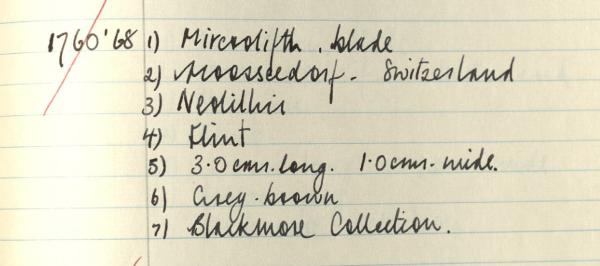 1760'68 1) Mircrolifth. blade
2) Moosseedorf. Switzerland
3) Neolithic
4) Flint
5) 3.0 cms. long. 1.0 cms. wide.
6) Grey-brown
7) Blackmore Collection.